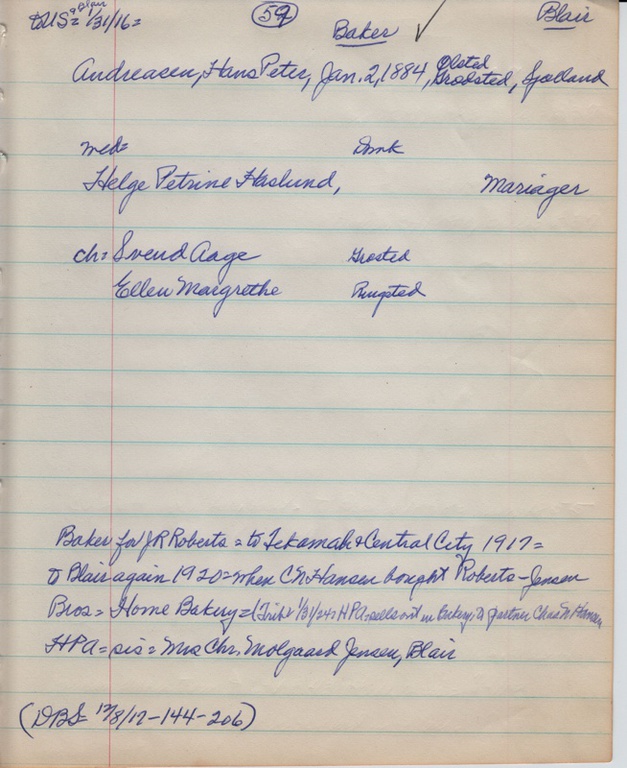 to US= 1/31/16=
Blair
59
Baker ✓
Blair
Andreasen, Hans Peter, Jan. 2, 1884, Grodsted, Sjolland
Olsted
med= Dmk
Helge Petrine Haslund, Mariager
ch= Svend Aage Grosted
Ellen Margrethe Ringsted
Baker for JR Roberts = to Tekamah & Central City 1917=
to Blair again 1920=when Ch. Hansen bought Roberts-Jensen
Bros= Home Bakery=(Trib= 1/31/24=HPA=sells out in Bakery, to partner Chas N Hansen
HPA=sis=Mrs Chr. Molgaard Jensen, Blair
(DBS= 12/8/17-144-206)